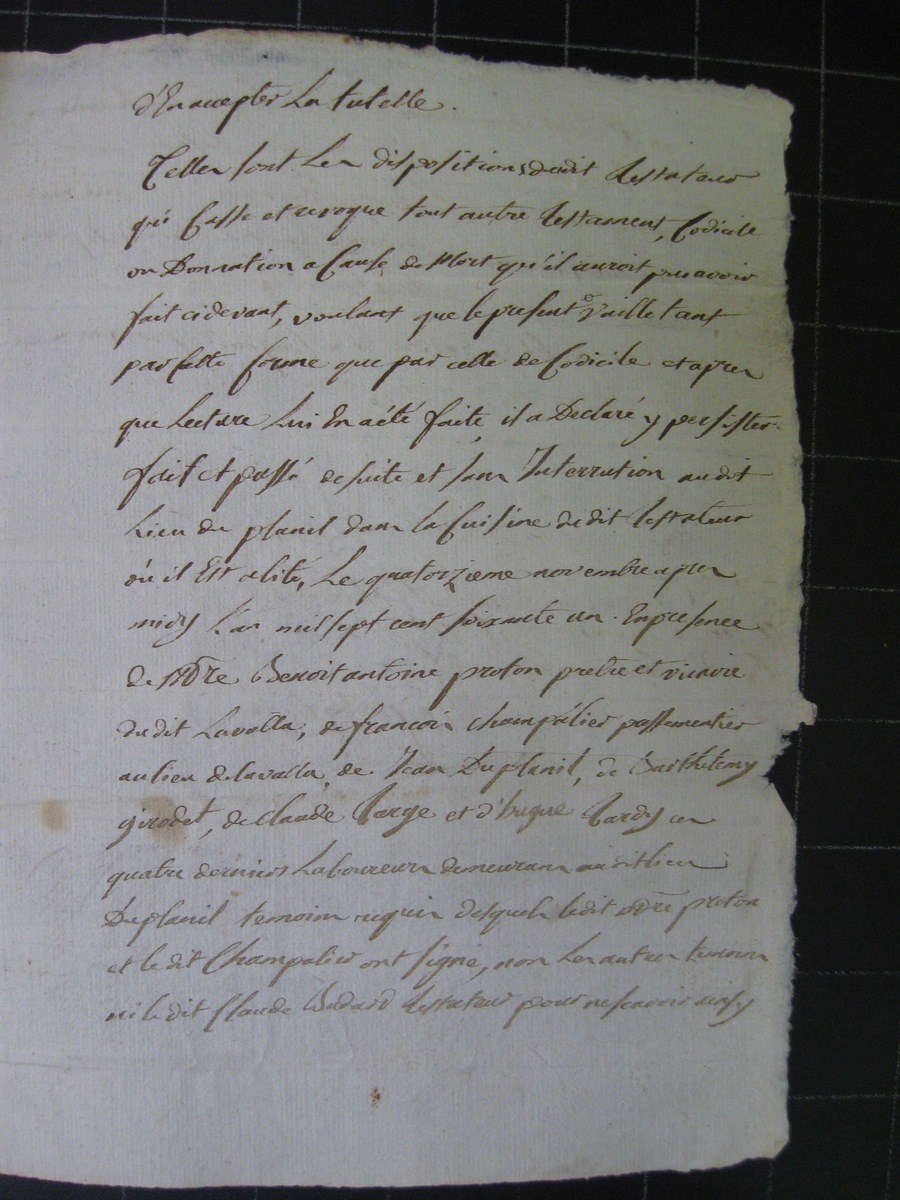 d'En accepter La tutelle.
Telles sont Les dispositions dudit testateur
qui Casse et revoque tout autre testament, Codicile
ou Donnation a Cause de Mort qu'il auroit pu avoir
fait cidevant, voulant que le present vaille tant
par Cette forme que par celle de Codicile et apres
que Lecture Lui En a été faite, il a Declaré y persister.
fait et passé de suite et sans Interrution audit
Lieu du planil dans la Cuisine dudit testateur
ou il Est alité, Le quatorzieme novembre apres
midy L'an mil sept cent soixante un. En presence
de Mre Benoit antoine proton pretre et vicaire
dudit Lavalla, de francois champalier passementier
au lieu de lavalla, de Jean Duplanil, de Barthelemy
girodet, de Claude Large et d'hugue tardy ces
quatre derniers Laboureurs demeurans audit lieu
Du planil temoins requis desquels ledit Mre proton
et ledit Champalier ont signé, non Les autres temoins
ni le dit Claude testateur pour ne scavoir ainsy